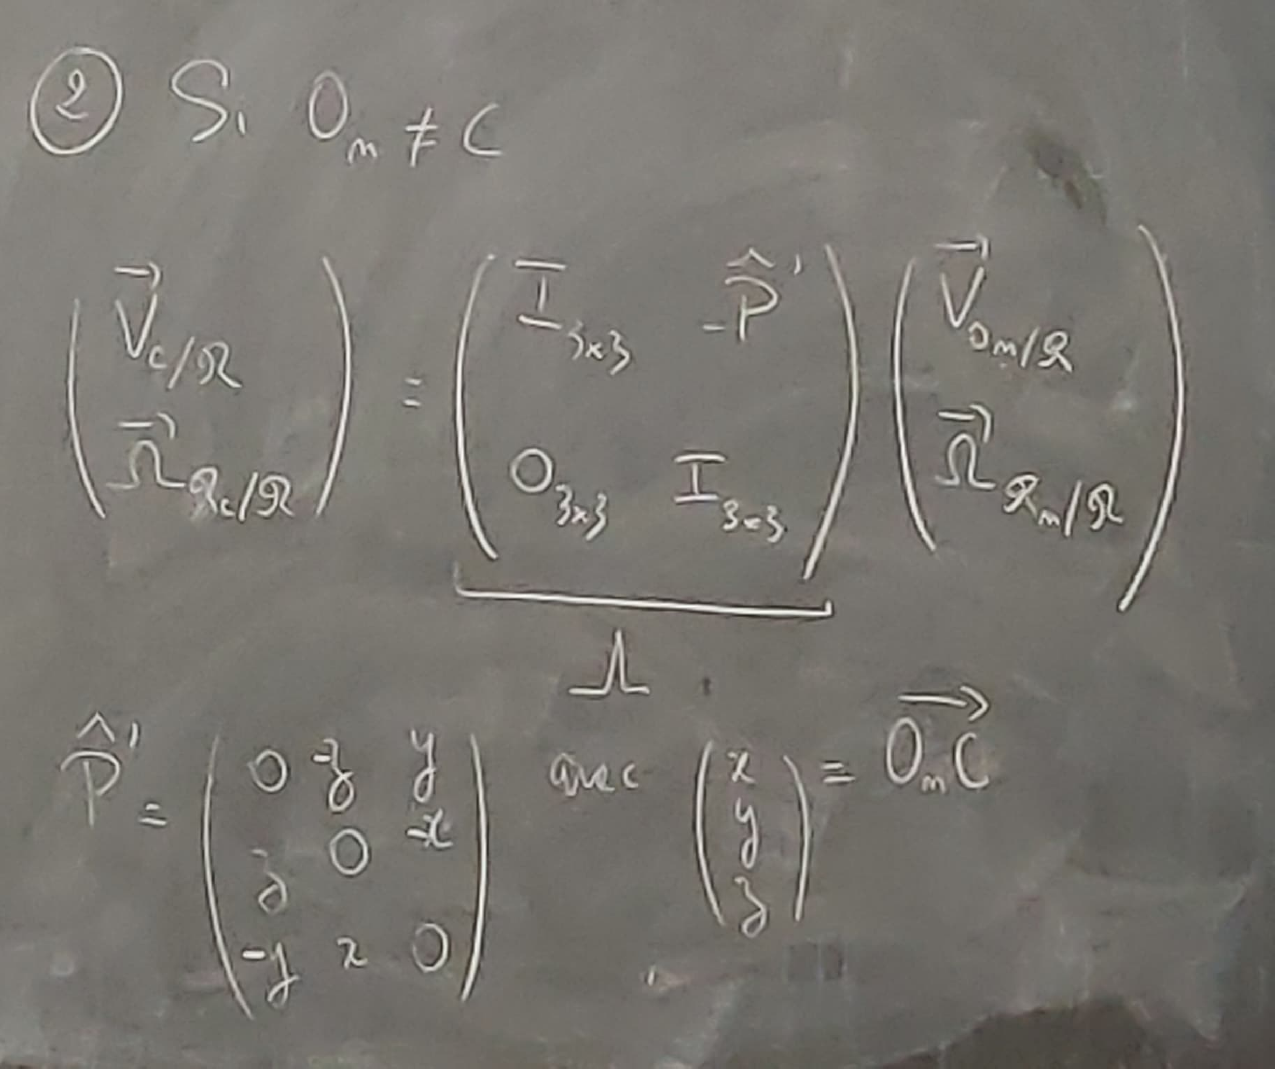 ② Si Oₘ ≠ C
( V⃗_{C/ℜ} ; Ω⃗_{ℜc/ℜ} ) = ( I_{3×3} -P̂' ; O_{3×3} I_{3×3} ) ( V⃗_{Oₘ/ℜ} ; Ω⃗_{ℜₘ/ℜ} )
Λ
P̂' = ( 0 -z y ; z 0 -x ; -y x 0 ) avec ( x ; y ; z ) = OₘC⃗